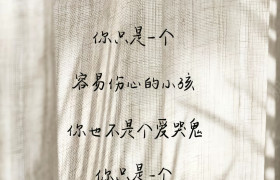 你只是一个
容易伤心的小孩
你也不是个爱哭鬼
你只是一个